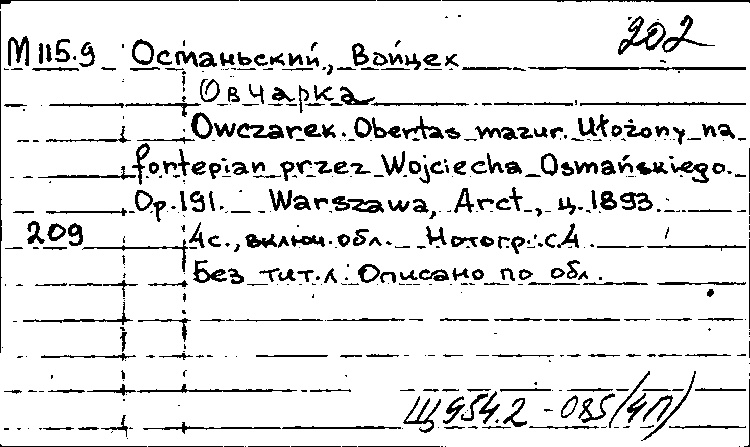 202
М 115.9 Останьский, Войцех
Овчарка
Owczarek. Obertas mazur. Ułożony na
fortepian przez Wojciecha Osmańskiego.
Op. 191. Warszawa, Arct, ц. 1893.
209 4с., включ. обл. Нотогр.: с.4
Без тит. л. Описано по обл.
Щ954.2-085(4П)